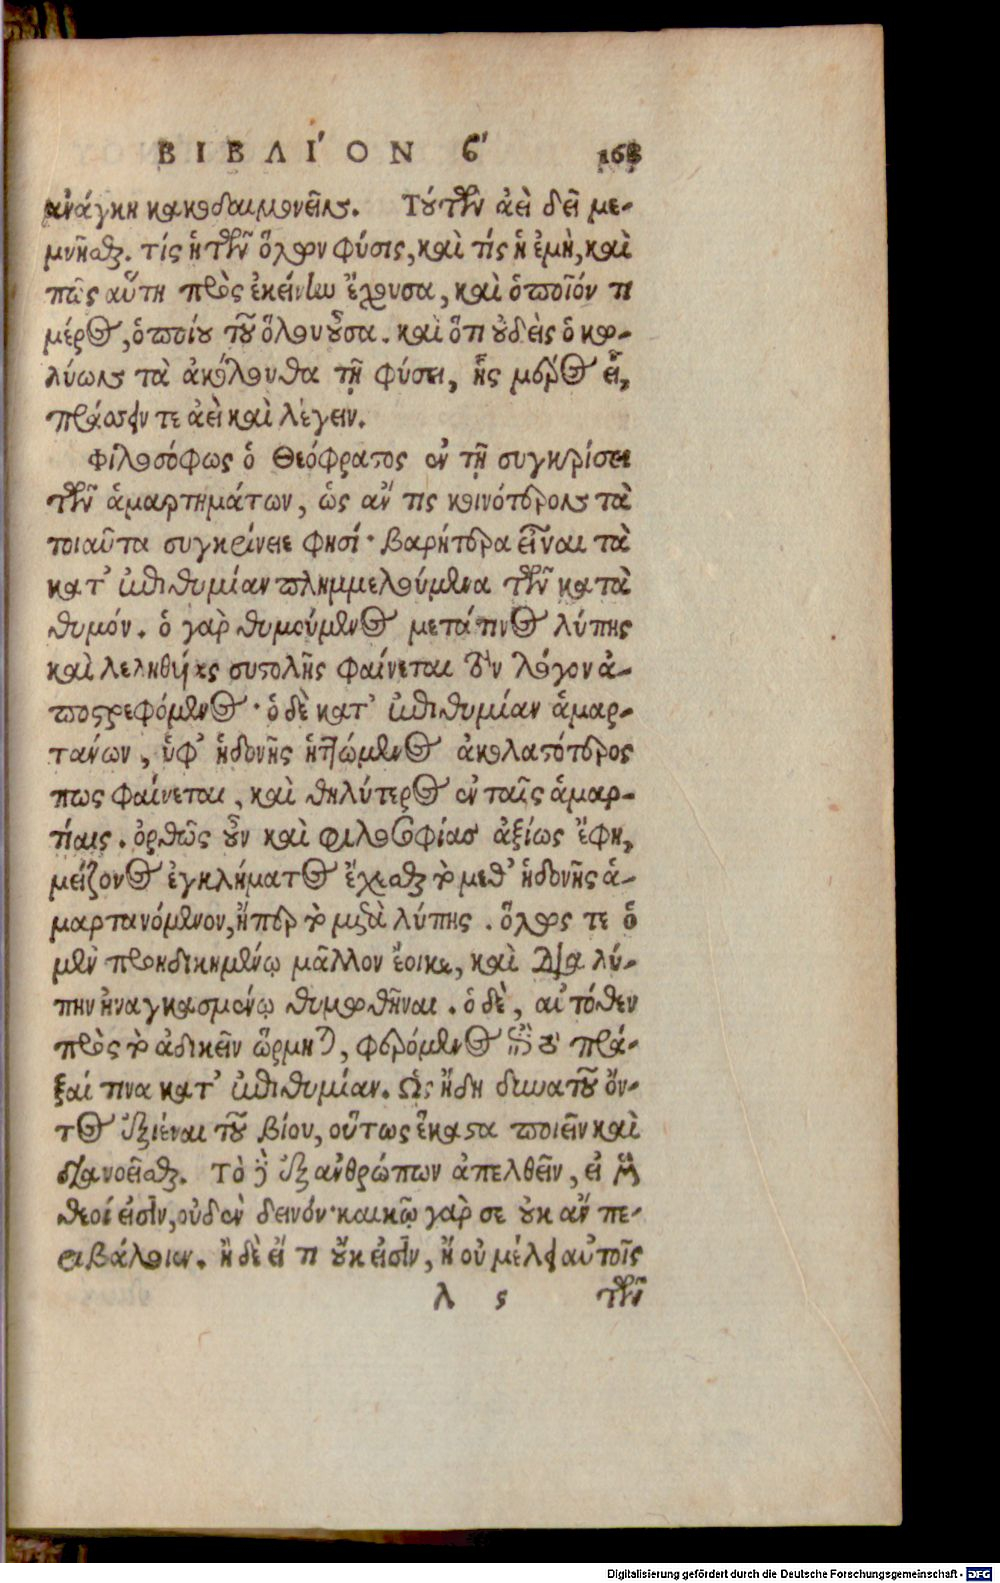 ΒΙΒΛΙ΄ΟΝ ϛ΄ 168
ἀνάγκη κακοδαιμονεῖν. Τούτων ἀεὶ δεῖ με-
μνῆσθαι. τίς ἡ τῶν ὅλων φύσις, καὶ τίς ἡ ἐμὴ, καὶ
πῶς αὕτη πρὸς ἐκείνην ἔχουσα, καὶ ὁποῖόν τι
μέρος, ὁποίου τοῦ ὅλου οὖσα. καὶ ὅτι οὐδεὶς ὁ κω-
λύων τὰ ἀκόλουθα τῇ φύσει, ἧς μέρος εἶ,
πράσσειν τε ἀεὶ καὶ λέγειν.
Φιλοσόφως ὁ Θεόφραστος ἐν τῇ συγκρίσει
τῶν ἁμαρτημάτων, ὡς ἄν τις κοινότερον τὰ
τοιαῦτα συγκρίνειε φησί· βαρήτερα εἶναι τὰ
κατ᾽ ἐπιθυμίαν πλημμελούμενα τῶν κατὰ
θυμόν. ὁ γὰρ θυμούμενος μετά τινος λύπης
καὶ λεληθυίας συστολῆς φαίνεται τὸν λόγον ἀ-
ποστρεφόμενος· ὁ δὲ κατ᾽ ἐπιθυμίαν ἁμαρ-
τάνων, ὑφ᾽ ἡδονῆς ἡττώμενος ἀκολαστότερος
πως φαίνεται, καὶ θηλύτερος ἐν ταῖς ἁμαρ-
τίαις. ὀρθῶς οὖν καὶ φιλοσοφίας ἀξίως ἔφη,
μείζονος ἐγκλήματος ἔχεσθαι τὸ μεθ᾽ ἡδονῆς ἁ-
μαρτανόμενον, ἤπερ τὸ μετὰ λύπης. ὅλως τε ὁ
μὲν προηδικημένῳ μᾶλλον ἔοικε, καὶ διὰ λύ-
πην ἠναγκασμένῳ θυμωθῆναι. ὁ δὲ, αὐτόθεν
πρὸς τὸ ἀδικεῖν ὥρμηται, φερόμενος ἐπὶ τὸ πρᾶ-
ξαί τινα κατ᾽ ἐπιθυμίαν. Ὡς ἤδη δυνατοῦ ὄν-
τος ἐξιέναι τοῦ βίου, οὕτως ἕκαστα ποιεῖν καὶ
διανοεῖσθαι. Τὸ δὲ ἐξ ἀνθρώπων ἀπελθεῖν, εἰ μὲν
θεοί εἰσὶν, οὐδὲν δεινόν· κακῷ γάρ σε οὐκ ἂν πε-
ριβάλοιεν. ἢ δὲ εἴ τι οὔκ εἰσὶν, ἢ οὐ μέλει αὐτοῖς
λ ς τῶν
Digitalisierung gefördert durch die Deutsche Forschungsgemeinschaft - DFG